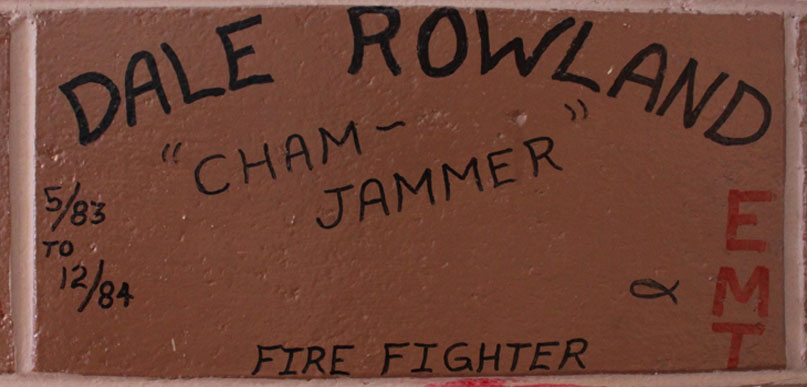 DALE ROWLAND
"CHAM-
JAMMER"
5/83
TO
12/84
EMT
FIRE FIGHTER